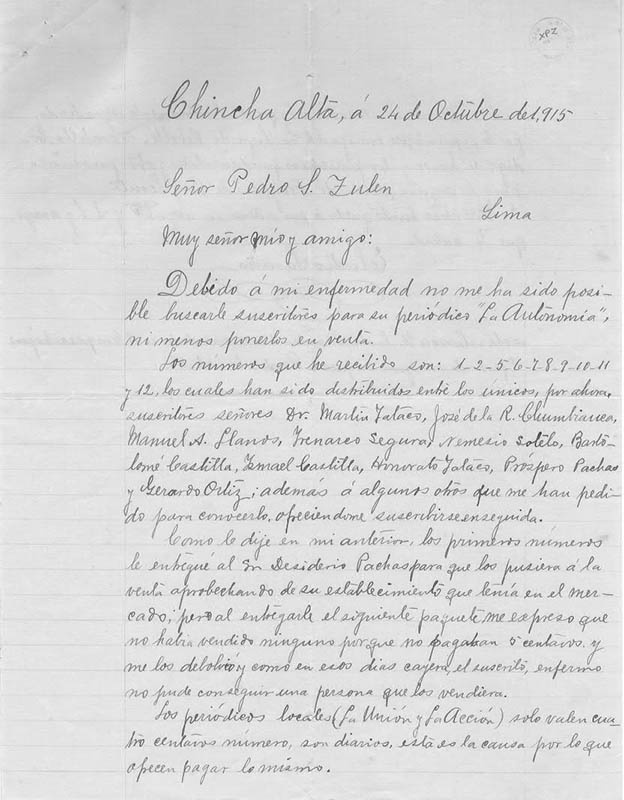 XPZ
Chincha Alta, á 24 de Octubre de 1,915
Señor Pedro S. Zulen
Lima
Muy señor mío y amigo:
Debido á mi enfermedad no me ha sido posi-
ble buscarle suscritores para su periódico "La Autonomía",
ni menos ponerlos en venta.
Los números que he recibido son: 1-2-5-6-7-8-9-10-11
y 12, los cuales han sido distribuidos entre los únicos, por ahora,
suscritores señores Dr. Martin Tataco, José de la R. Chumbiauca,
Manuel A. Llanos, Trenarco Segura, Nemesio Sotelo, Barto-
lomé Castilla, Ismael Castilla, Honorato Tataco, Próspero Pachas
y Gerardo Ortiz; además á algunos otros que me han pedi-
do para conocerlo, ofreciendome suscribirse enseguida.
Como le dije en mi anterior, los primeros números
le entregué al Sr Desiderio Pachas para que los pusiera á la
venta aprobechando de su establecimiento que tenía en el mer-
cado; pero al entregarle el siguiente paquete, me expreso que
no habia vendido ninguno por que no pagaban 5 centavos y
me los debolvió y como en esos dias cayera, el suscrito, enfermo
no pude conseguir una persona que los vendiera.
Los periódicos locales (La Unión y La Acción) solo valen cua
tro centavos número, son diarios, esta es la causa por lo que
ofrecen pagar lo mismo.